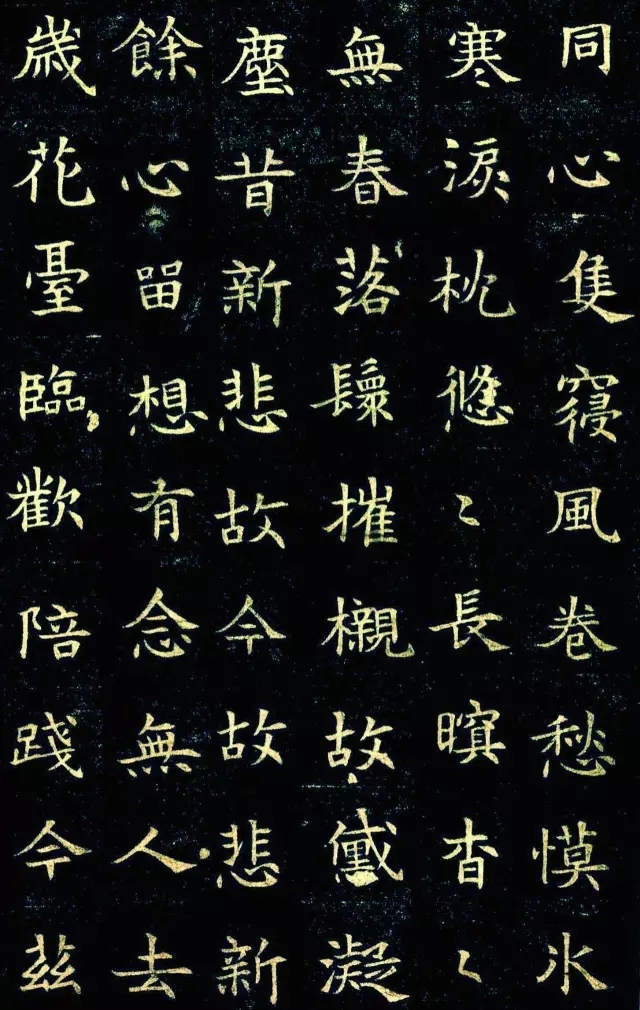 同心隻寢風卷愁慔氷
寒淚枕悠〻長暝杳〻
無春落鬟摧櫬故黛凝
塵昔新悲故今故悲新
餘心留想有念無人去
歲花臺臨歡陪踐今茲